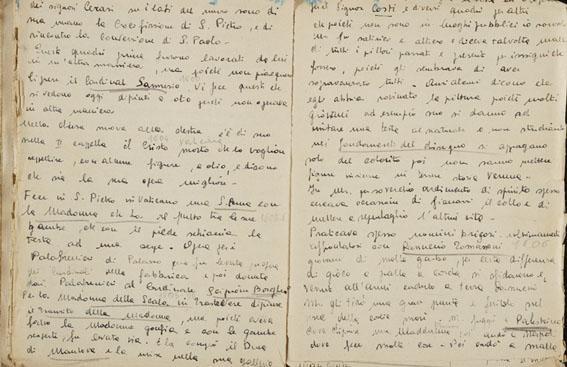 dei signori Cerasi ne i lati del muro sono di
sua mano la Crocifissione di S. Pietro, e di
rincontro la Conversione di S. Paolo -
Questi quadri prima furono lavorati da lui
in un'altra maniera, ma poiché non piacquero
li prese il Cardinal Sannesio. Vi fece questi che
si vedono oggi dipinti a olio perché non operava
in altra maniera
Nella chiesa nuova alla destra c'è di suo
nella II cappella il Cristo morto che lo vogliono
seppellire, con alcune figure, a olio, e dicono
che sia la sua opera migliore -
Fece in S. Pietro in Vaticano una S. Anna con
la Madonna che ha il putto tra le sue
gambe, che con il piede schiaccia la
testa ad una serpe. Opera per i
Palafrenieri di Palazzo, ma fu levata
dai Cardinali della fabbrica e poi donata
dai Palafrenieri al Cardinale Scipione Borghese
Per la Madonna della Scala in Trastevere dipinse
il transito della Madonna, ma poiché aveva
fatto la Madonna gonfia e con le gambe
scoperte, fu levata via. E la comprò il Duca
di Mantova e la mise nella sua galleria
Signor Costi e diversi quadri per altri
che poiché non sono in luoghi pubblici io
Fu satirico e altiero e diceva talvolta male
di tutti i pittori passati e presenti per insigni che
fossero, poiché gli sembrava di aver
sopravanzato tutti. Anzi alcuni dicono che
egli abbia rovinato la pittura poiché molti
giovani ad esempio suo si danno ad
imitare una testa al naturale e non studiando
nei fondamenti del disegno si appagano
solo del colorito poi non sanno mettere
figure insieme né tessere storie
per soverchio ardimento di spirito spesso
cercava occasioni di fiaccarsi il collo e di
mettere a repentaglio l'altrui vita -
Praticava spesso uomini
con Rannuccio Tomassoni 1606
giovane di molto garbo, per certa differenza
di gioco a palla a corda si sfidarono e,
venuti all'armi caduto a terra Rannuccio
gli tirò una punta e feritolo nel
della coscia morì - fuggì a Palestrina
dove dipinse una Maddalena, poi andò a Napoli
dove fece molte cose - Poi andò a Malta